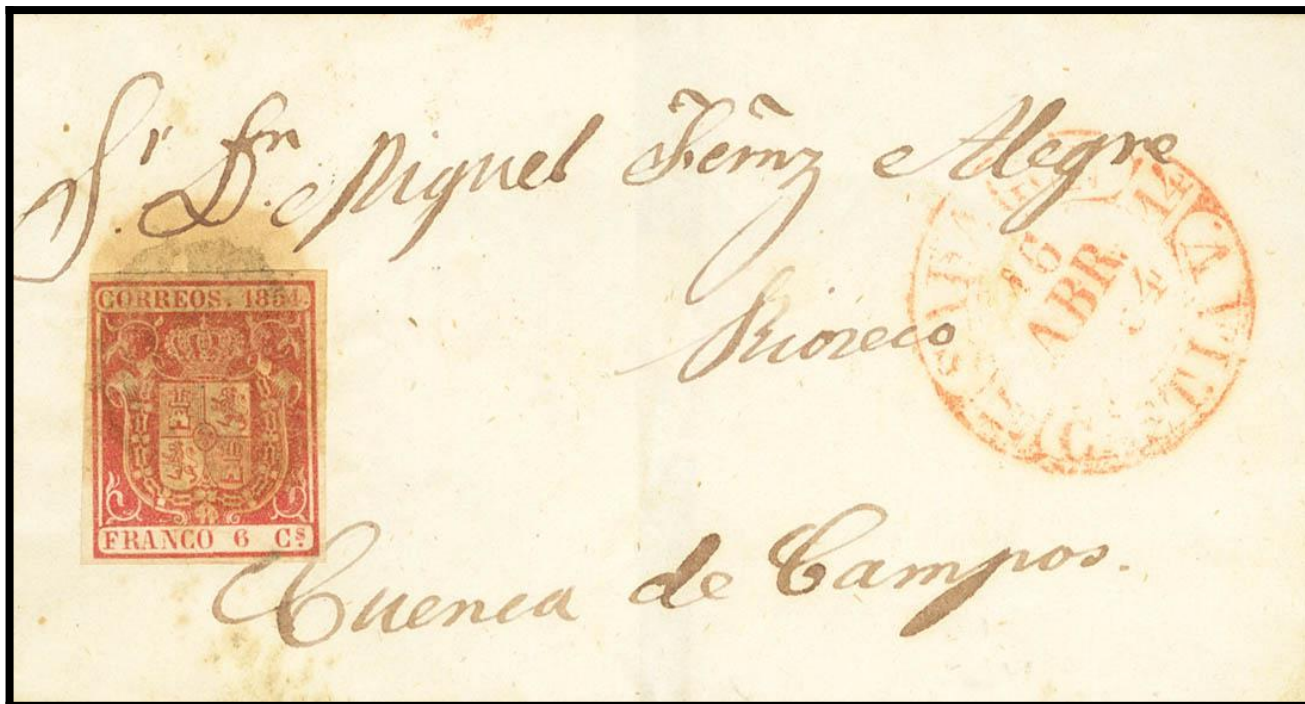 Sr. Dn. Miguel Fernz Alegre
Rioseco
Cuenca de Campos.
CORREOS. 1854.
FRANCO 6 Cs.
16
ABR.
54
14